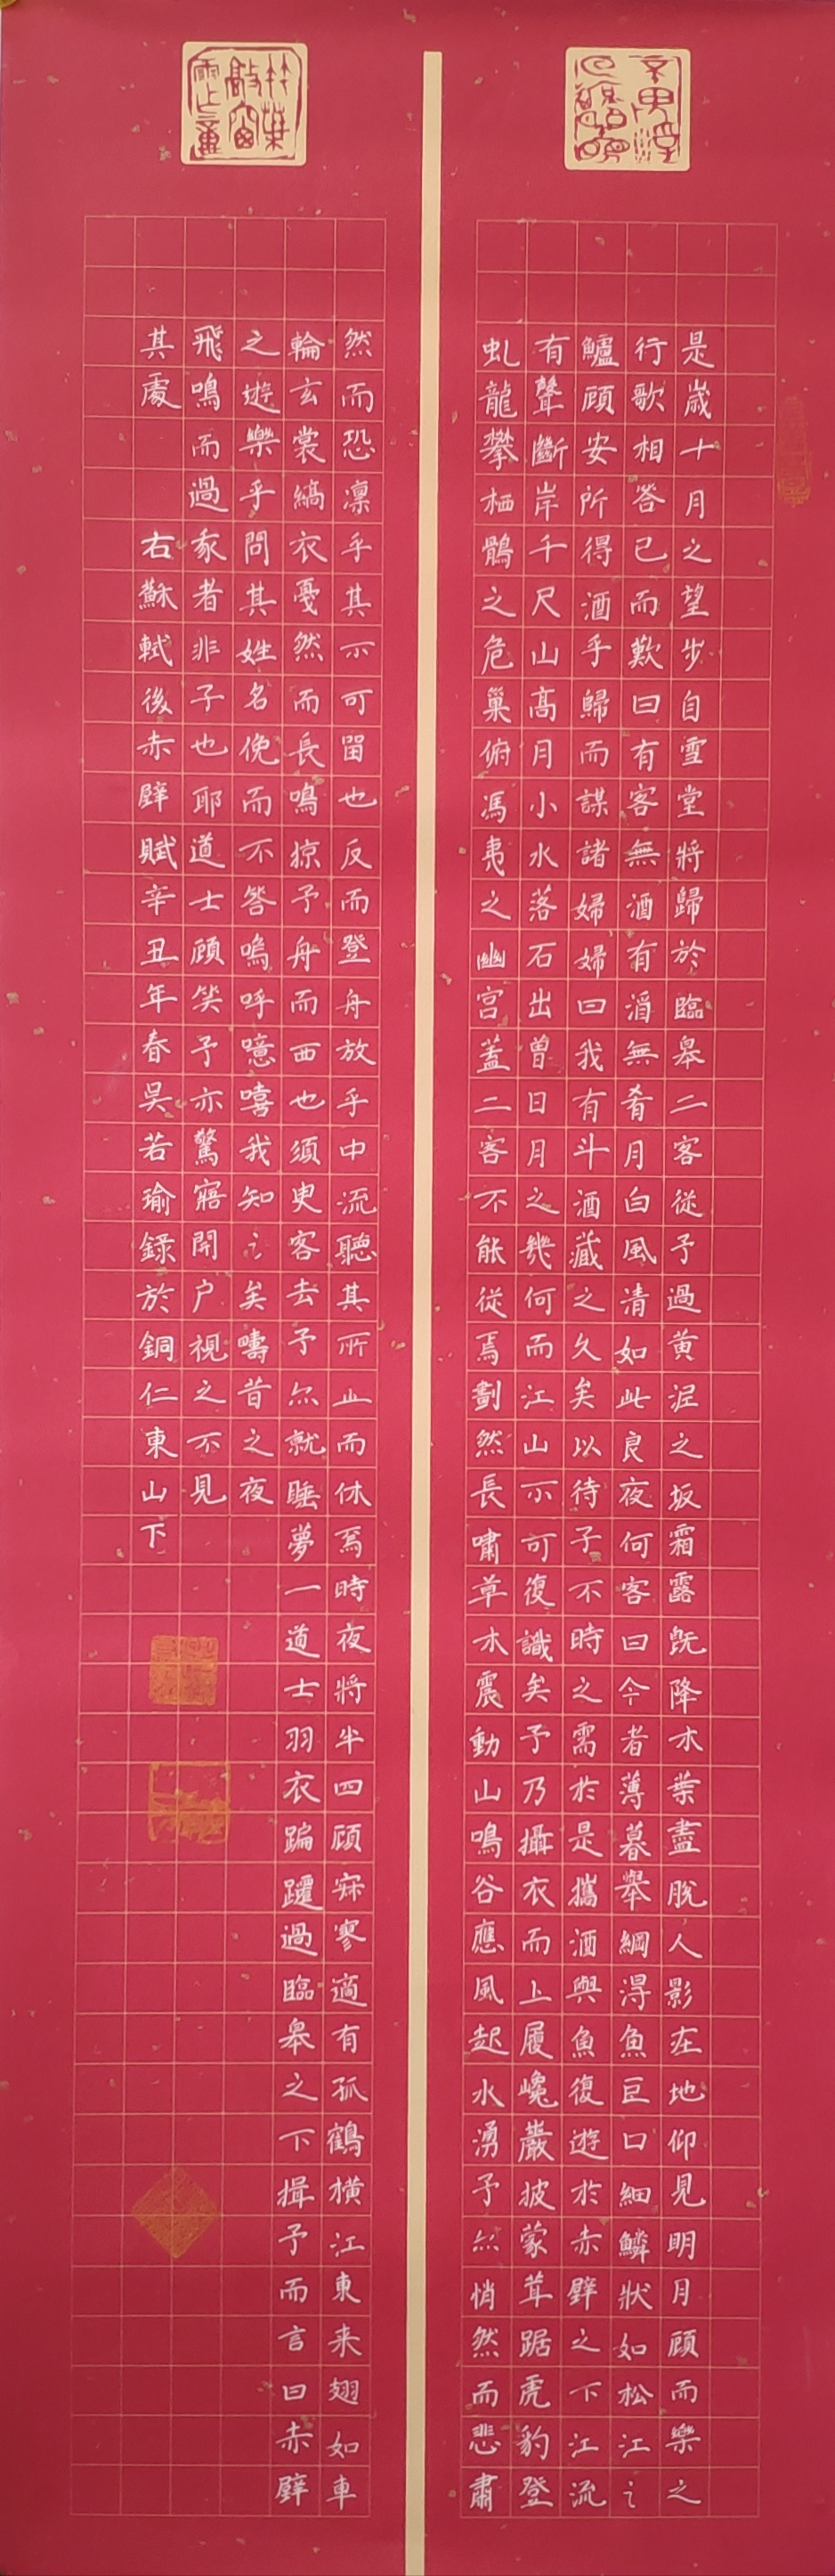 是歲十月之望步自雪堂將歸於臨皋二客從予過黃泥之坂霜露既降木葉盡脫人影在地仰見明月顧而樂之
行歌相答已而歎曰有客無酒有酒無肴月白風清如此良夜何客曰今者薄暮舉網得魚巨口細鱗狀如松江之
鱸顧安所得酒乎歸而謀諸婦婦曰我有斗酒藏之久矣以待子不時之需於是攜酒與魚復遊於赤壁之下江流
有聲斷岸千尺山高月小水落石出曾日月之幾何而江山不可復識矣予乃攝衣而上履巉巖披蒙茸踞虎豹登
虬龍攀栖鶻之危巢俯馮夷之幽宮蓋二客不能從焉劃然長嘯草木震動山鳴谷應風起水湧予亦悄然而悲肅
然而恐凛乎其不可留也反而登舟放乎中流聽其所止而休焉時夜將半四顧寂寥適有孤鶴橫江東来翅如車
輪玄裳縞衣戛然而長鳴掠予舟而西也須臾客去予亦就睡夢一道士羽衣蹁躚過臨皋之下揖予而言曰赤壁
之遊樂乎問其姓名俛而不答嗚呼噫嘻我知之矣疇昔之夜
飛鳴而過我者非子也耶道士顧笑予亦驚寤開户視之不見
其處 右蘇軾後赤壁賦辛丑年春吴若瑜録於銅仁東山下